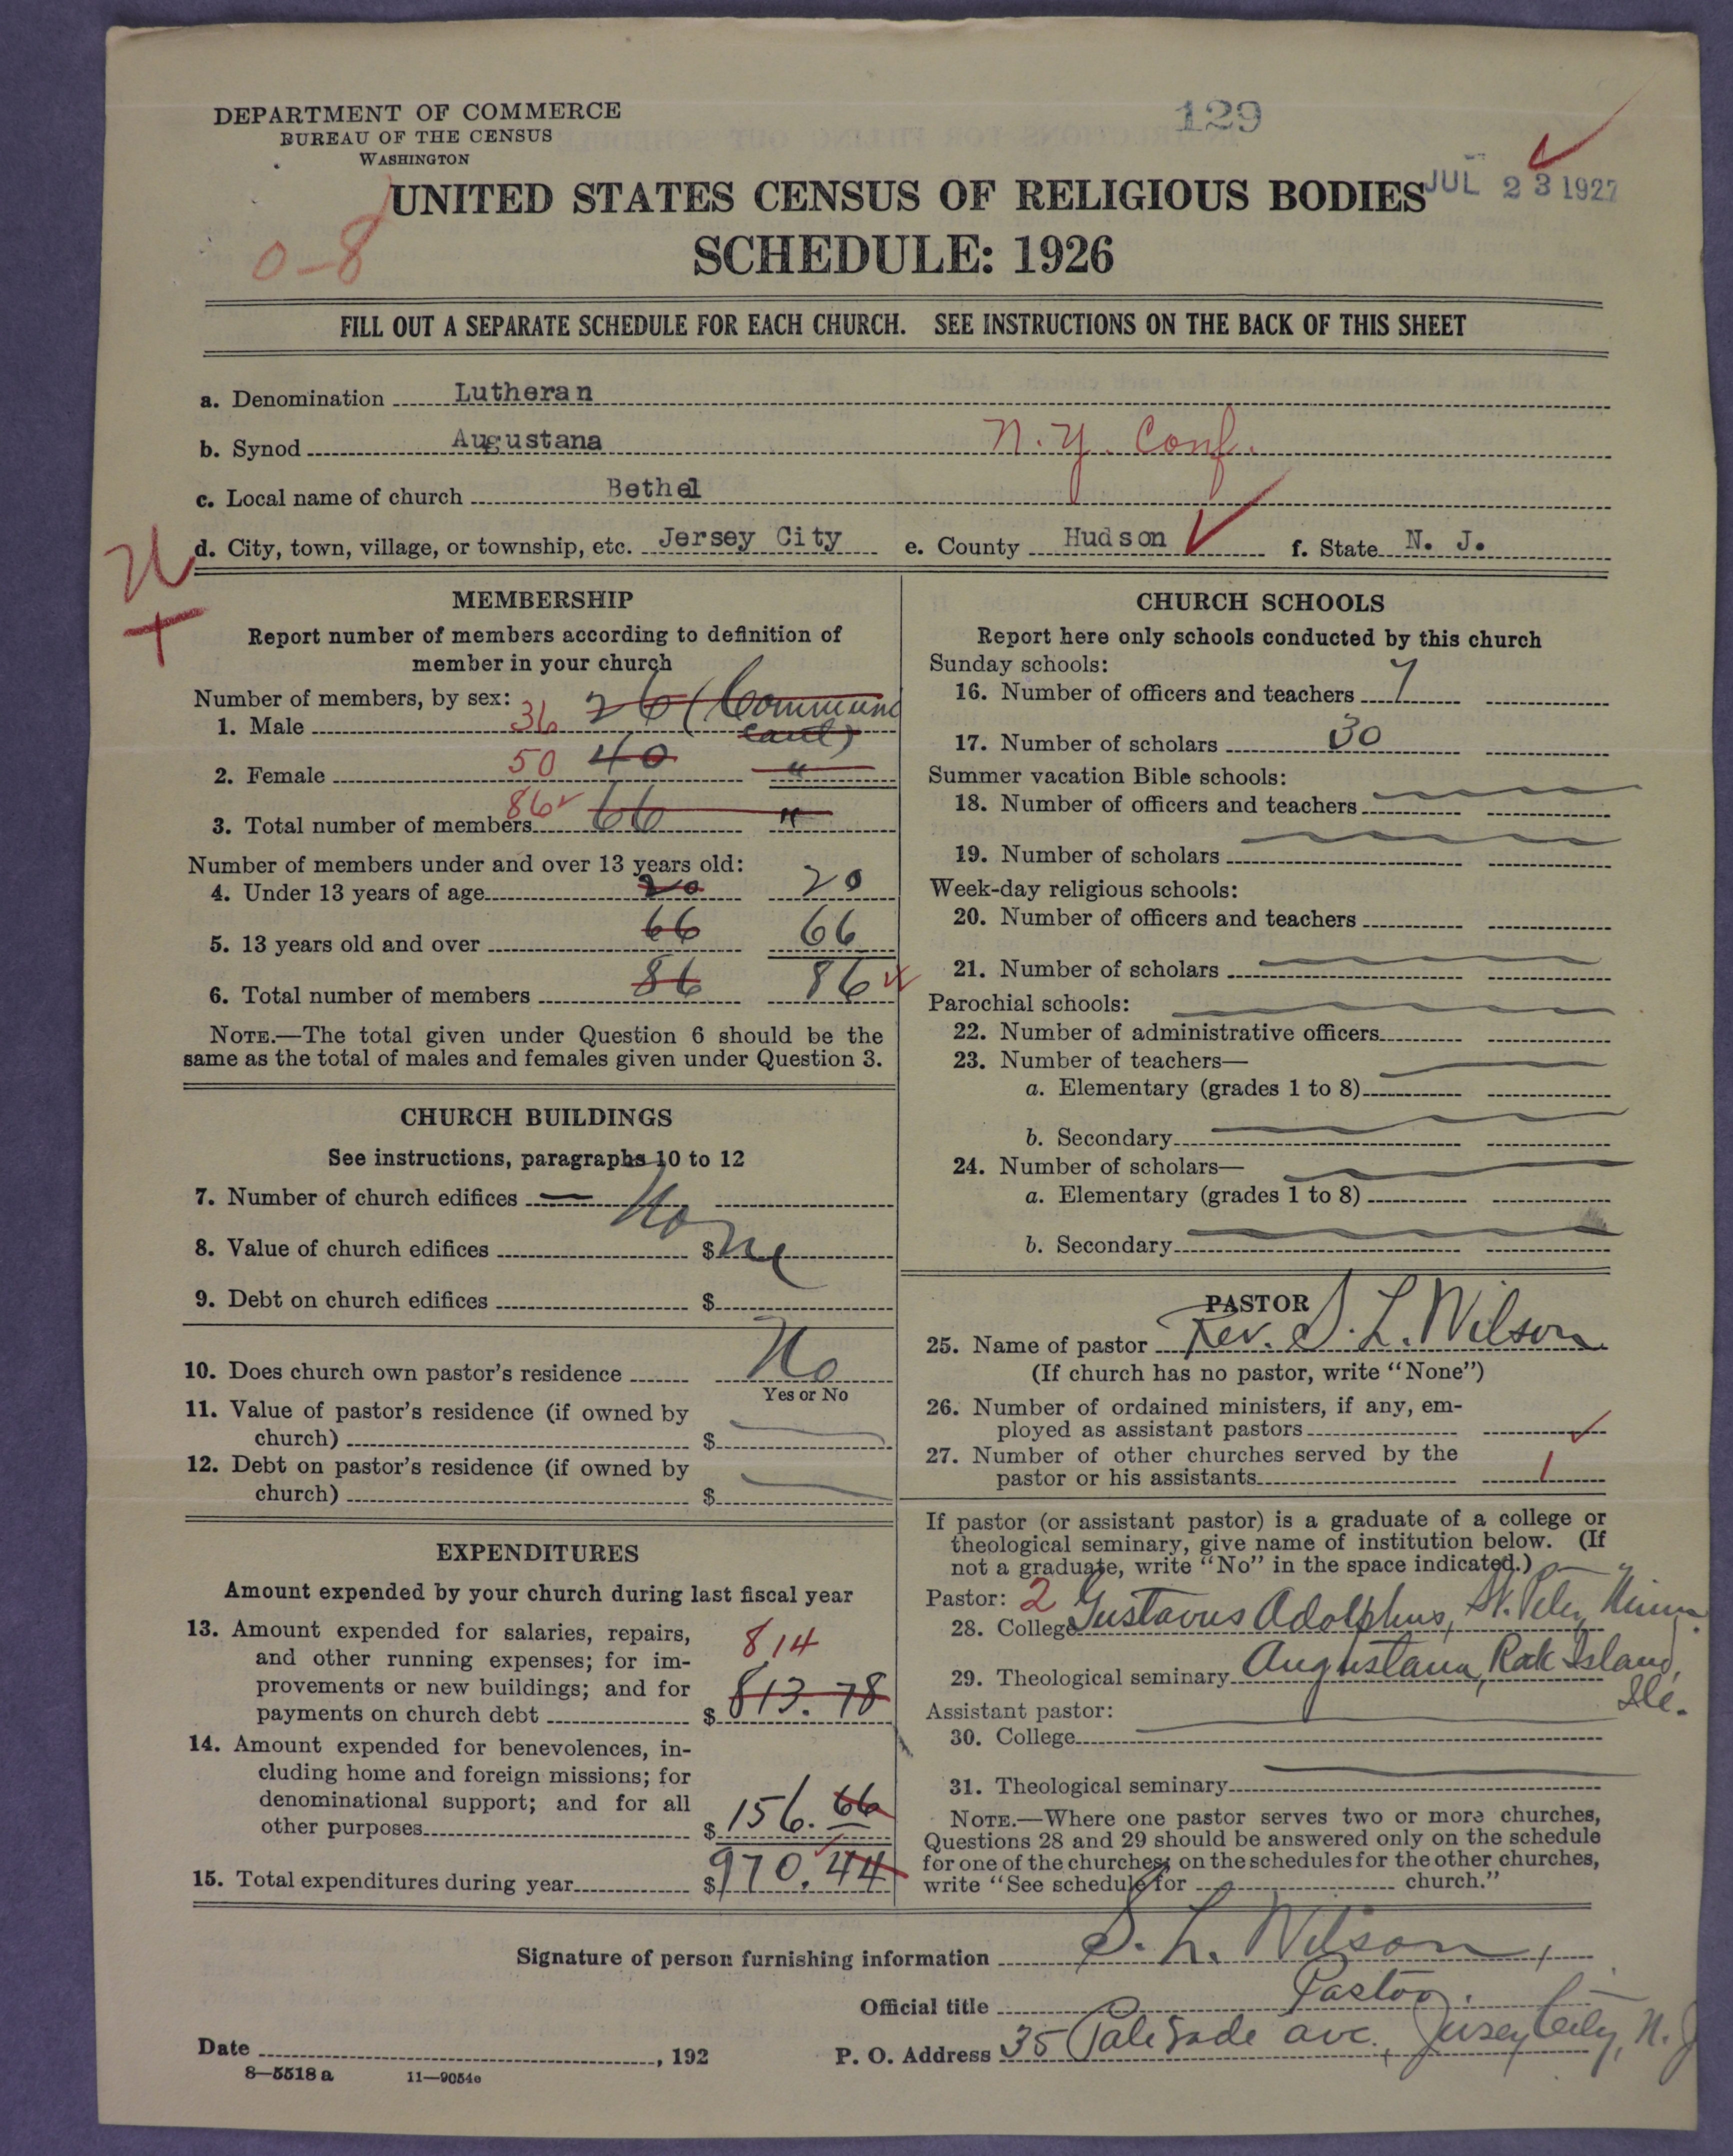 DEPARTMENT OF COMMERCE
BUREAU OF THE CENSUS
WASHINGTON
129
JUL 23 1927
UNITED STATES CENSUS OF RELIGIOUS BODIES
0-8
SCHEDULE: 1926
FILL OUT A SEPARATE SCHEDULE FOR EACH CHURCH. SEE INSTRUCTIONS ON THE BACK OF THIS SHEET
a. Denomination Lutheran
b. Synod Augustana N.Y. Conf.
c. Local name of church Bethel
d. City, town, village, or township, etc. Jersey City e. County Hudson f. State N. J.
MEMBERSHIP
Report number of members according to definition of
member in your church
Number of members, by sex:
1. Male 36 26 (Communicant)
2. Female 50 40 "
3. Total number of members 86 66 "
Number of members under and over 13 years old:
4. Under 13 years of age 20 20
5. 13 years old and over 66 66
6. Total number of members 86 86
NOTE.—The total given under Question 6 should be the
same as the total of males and females given under Question 3.
CHURCH BUILDINGS
See instructions, paragraphs 10 to 12
7. Number of church edifices None
8. Value of church edifices $
9. Debt on church edifices $
10. Does church own pastor's residence No
Yes or No
11. Value of pastor's residence (if owned by
church) $
12. Debt on pastor's residence (if owned by
church) $
EXPENDITURES
Amount expended by your church during last fiscal year
13. Amount expended for salaries, repairs,
and other running expenses; for im-
provements or new buildings; and for
payments on church debt $ 814 813.78
14. Amount expended for benevolences, in-
cluding home and foreign missions; for
denominational support; and for all
other purposes $ 156.66
15. Total expenditures during year $ 970.44
CHURCH SCHOOLS
Report here only schools conducted by this church
Sunday schools:
16. Number of officers and teachers 7
17. Number of scholars 30
Summer vacation Bible schools:
18. Number of officers and teachers
19. Number of scholars
Week-day religious schools:
20. Number of officers and teachers
21. Number of scholars
Parochial schools:
22. Number of administrative officers
23. Number of teachers—
a. Elementary (grades 1 to 8)
b. Secondary
24. Number of scholars—
a. Elementary (grades 1 to 8)
b. Secondary
PASTOR
25. Name of pastor Rev. S. L. Wilson
(If church has no pastor, write "None")
26. Number of ordained ministers, if any, em-
ployed as assistant pastors
27. Number of other churches served by the
pastor or his assistants 1
If pastor (or assistant pastor) is a graduate of a college or
theological seminary, give name of institution below. (If
not a graduate, write "No" in the space indicated.)
Pastor: 2
28. College Gustavus Adolphus, St. Peter, Minn.
29. Theological seminary Augustana, Rock Island, Ill.
Assistant pastor:
30. College
31. Theological seminary
NOTE.—Where one pastor serves two or more churches,
Questions 28 and 29 should be answered only on the schedule
for one of the churches; on the schedules for the other churches,
write "See schedule for church."
Signature of person furnishing information S. L. Wilson,
Official title Pastor.
Date , 192
P. O. Address 35 Palisade ave., Jersey City, N. J
8—5518a 11—9054c